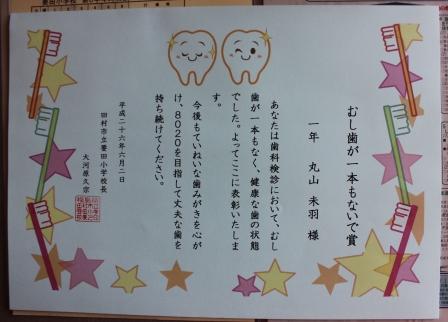 むし歯が一本もないで賞
一年 丸山 未羽 様
あなたは歯科検診において、むし
歯が一本もなく、健康な歯の状態
でした。よってここに表彰いたしま
す。
今後もていねいな歯みがきを心が
け、8020を目指して丈夫な歯を
持ち続けてください。
平成二十六年六月二日
田村市立要田小学校長
大河原久宗